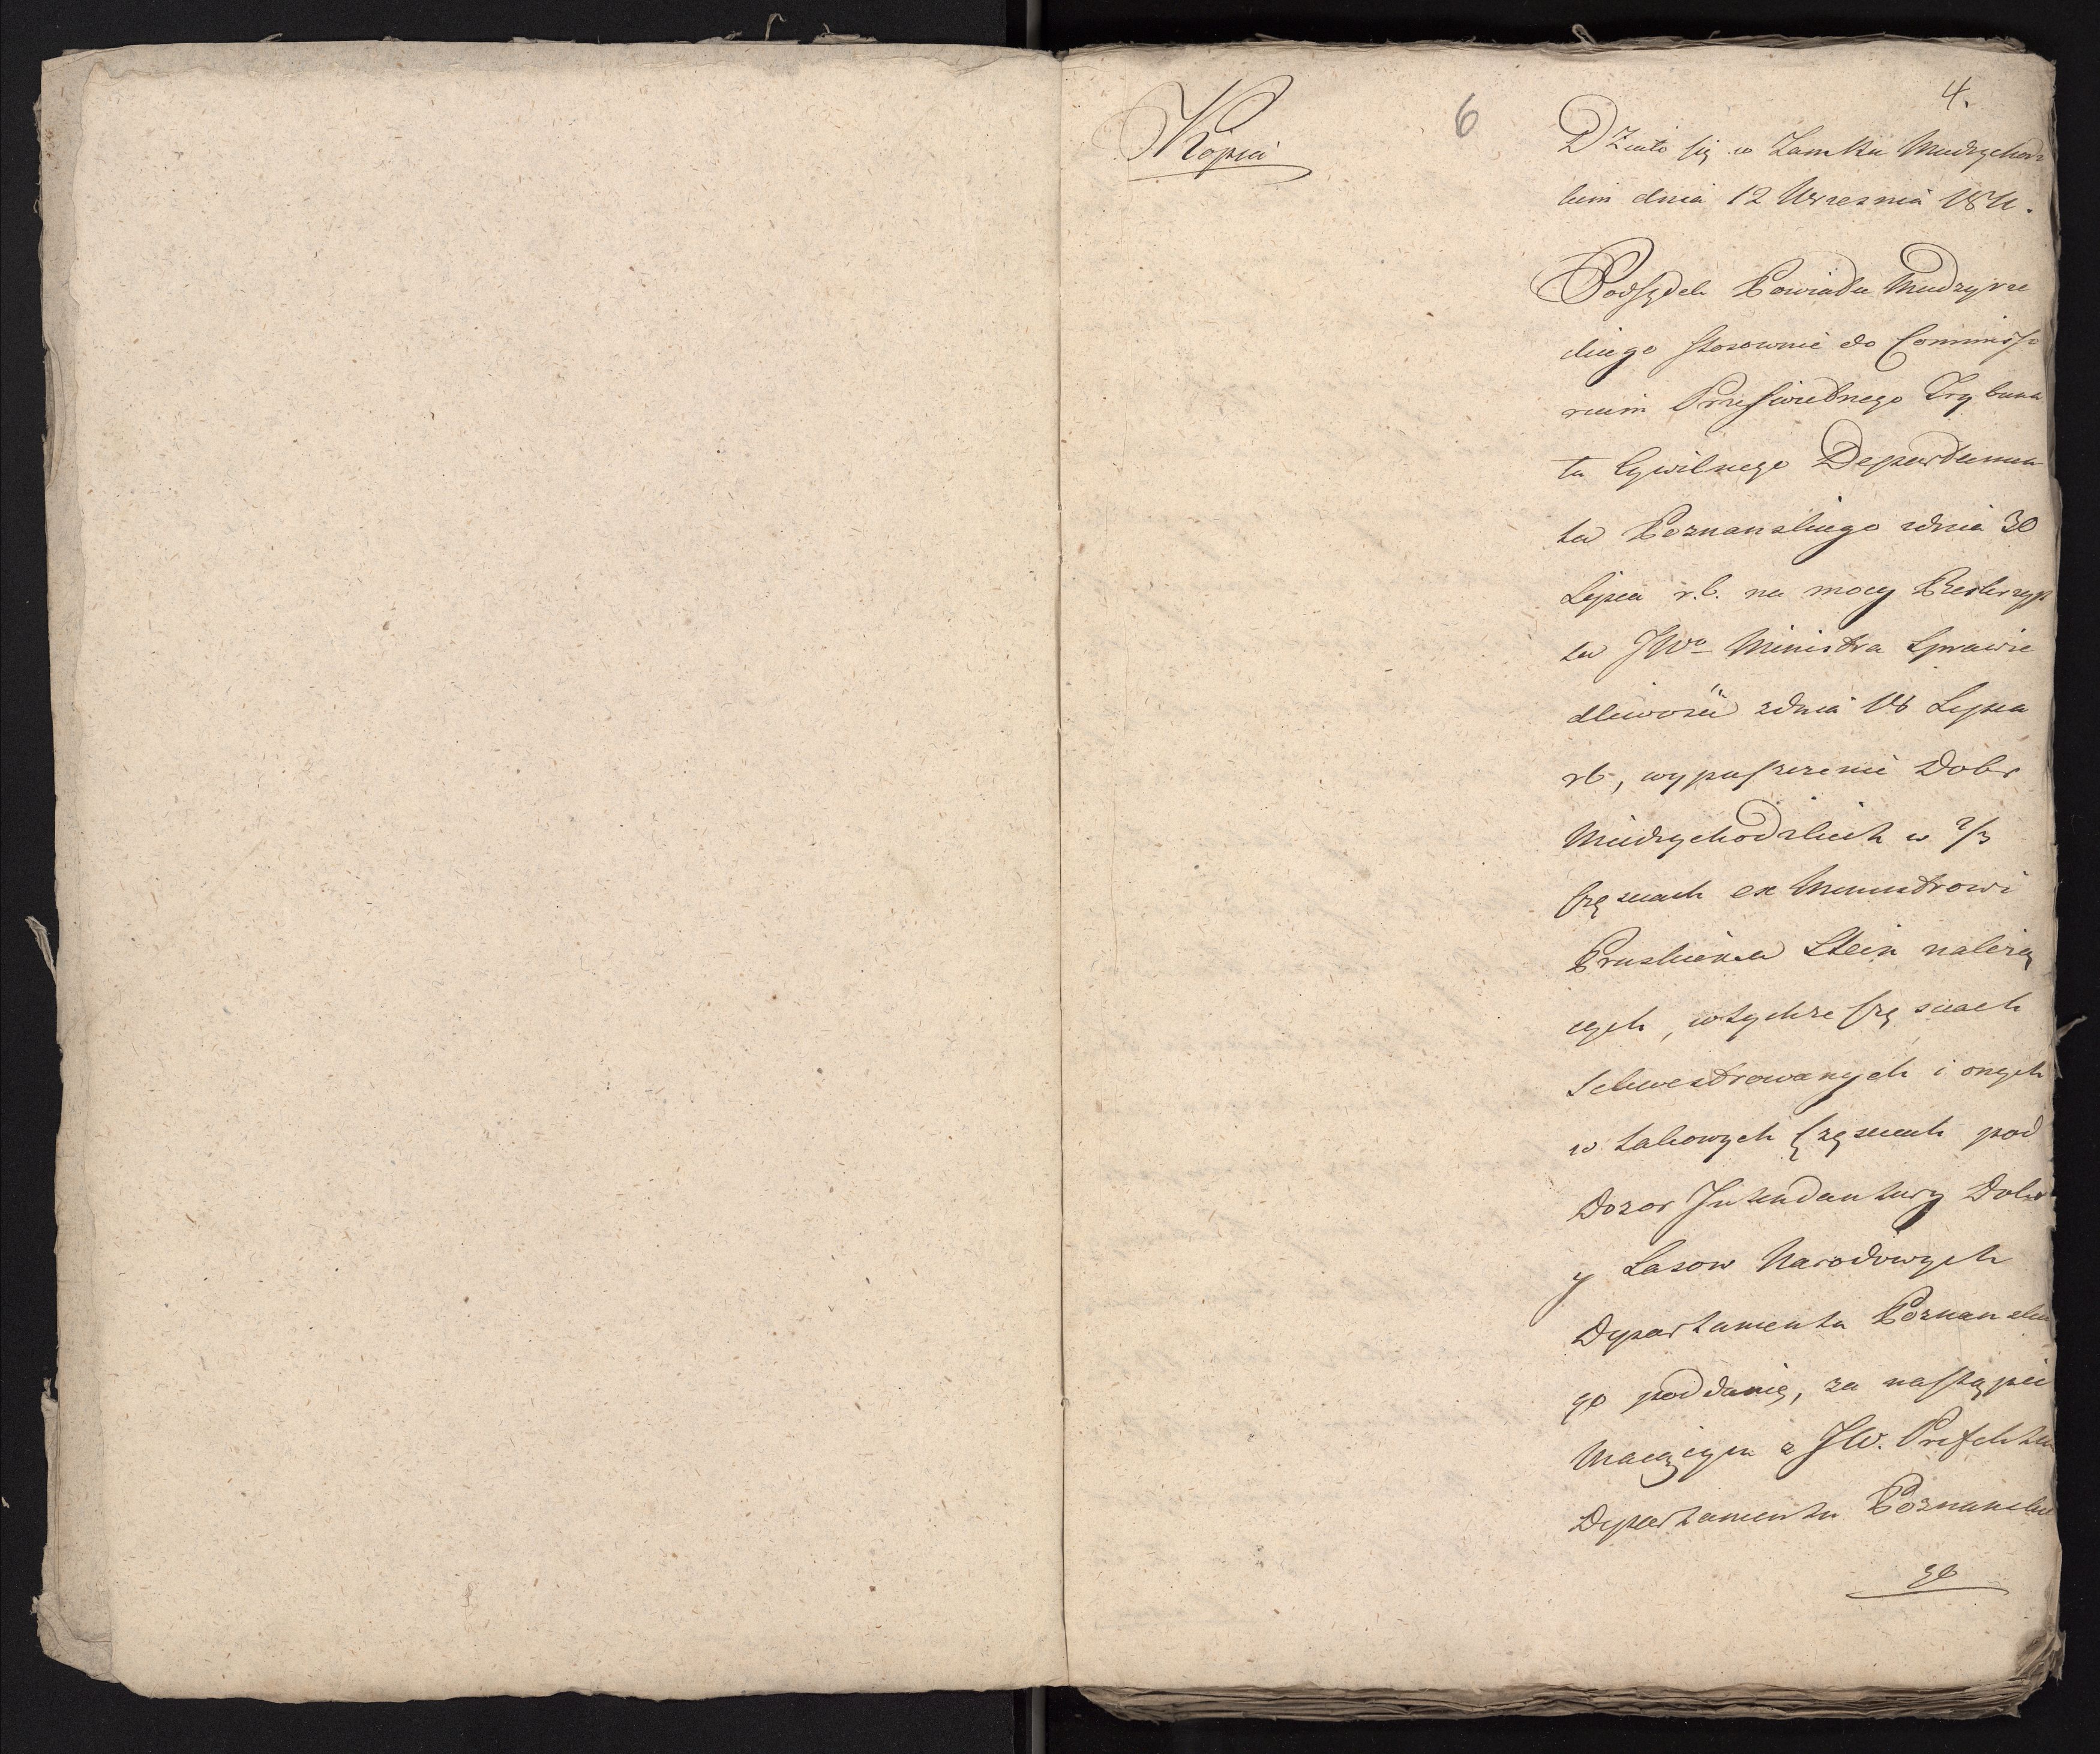 4.
6
Kopia
Działo się w Zamku Miedzychodz
kim dnia 12 Wrzesnia 1811.
Podsędek Powiatu Miedzyrze
ckiego stosownie do Commisso
rium Prześwietnego Trybuna
łu Cywilnego Departamen
tu Poznanskiego zdnia 30
Lipca r.b. na mocy Reskryp
tu JWo Ministra Sprawie
dliwości zdnia 18 Lipca
rb, wypuszczenie Dobr
Miedzychodzkich w 2/3
częsciach ex Ministrowi
Pruskiemu Stein należą
cych, wtychze częsciach
sekwestrowanych i onych
w takowych częsciach pod
Dozor Intendantury Dobr
y Lasow Narodowych
Departamentu Poznanskie
go poddanie, za nastąpio
JW. Prefektu
Departamentu Poznanskie
go